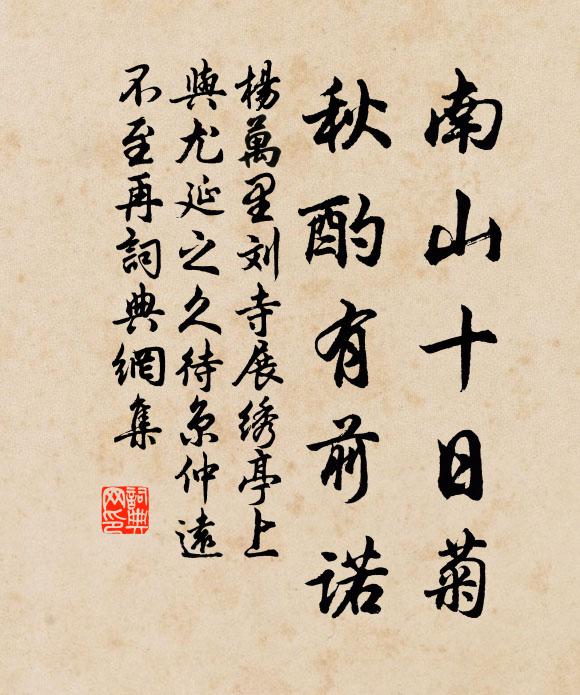 南山十日菊
秋酌有前诺
楊萬里刘寺展绣亭上
與尤延之久待京仲遠
不至再詞典網集
詞典
网印